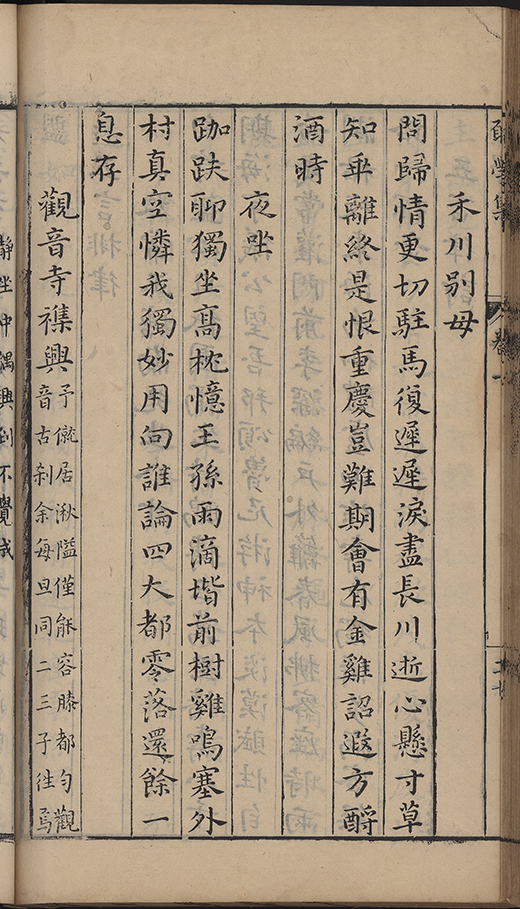 禾川别母
問歸情更切駐馬復遲遲淚盡長川逝心懸寸草
知乖離終是恨重慶豈難期會有金雞詔遐方酹
酒時
夜坐
跏趺聊獨坐高枕憶王孫雨滴堦前樹雞鳴塞外
村真空憐我獨妙用向誰論四大都零落還餘一
息存
觀音寺襍興
予僦居湫隘僅能容膝都勻觀
音古刹余每旦同二三子徃焉
静坐中偶興到不覺成